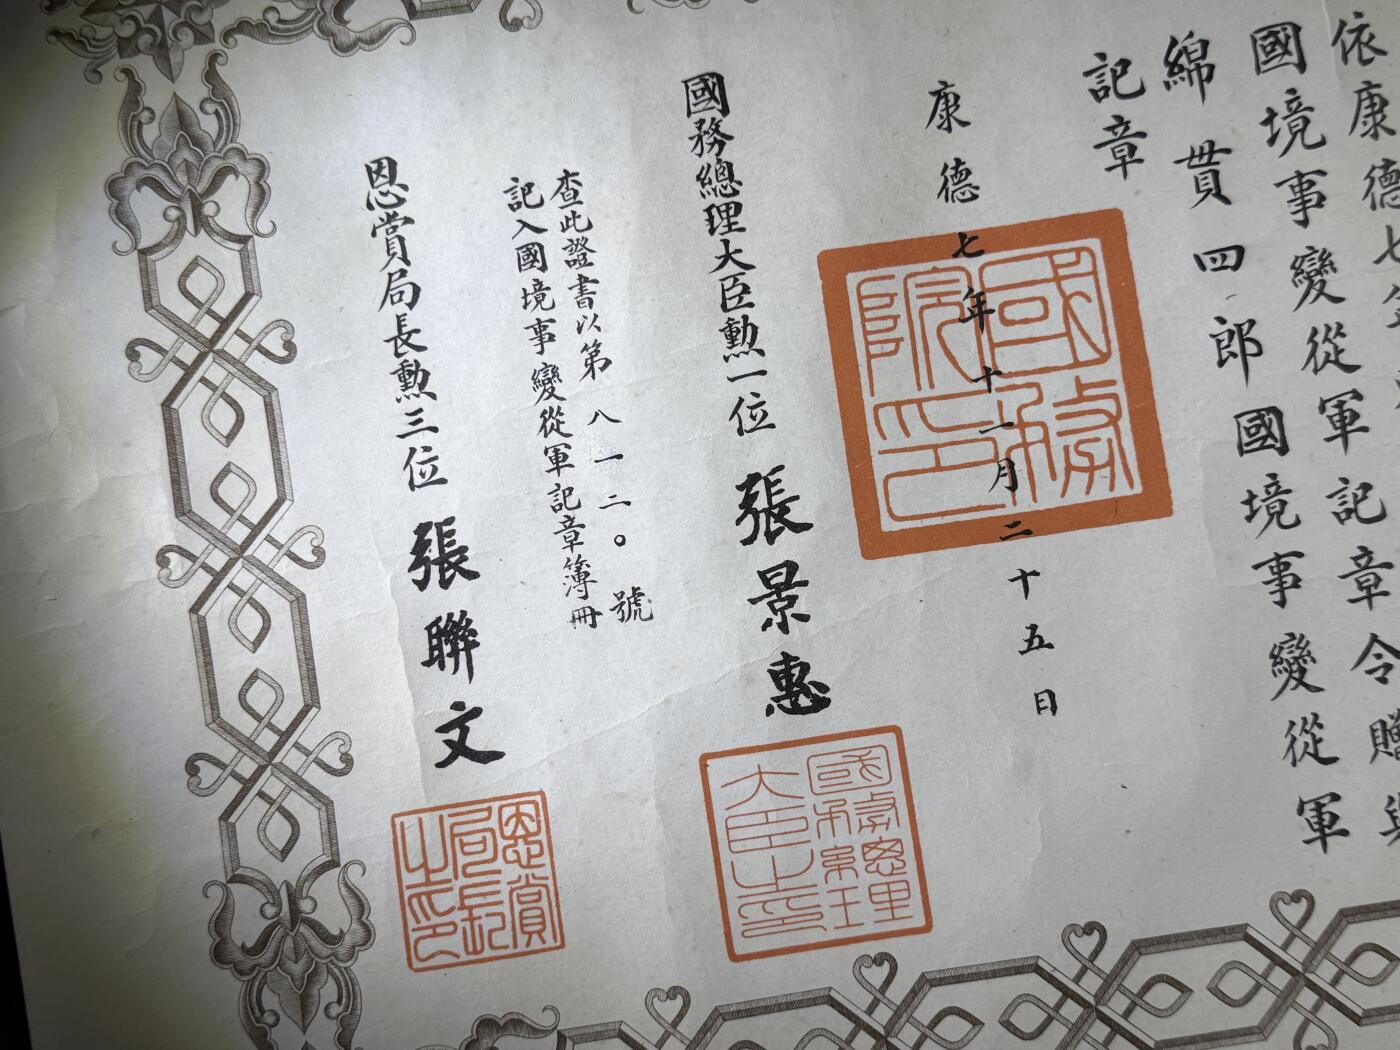 依康德七年
國境事變從軍記章令贈與
綿貫四郎國境事變從軍
記章
康德七年十一月二十五日
國務院印
國務總理大臣勲一位 張景惠
國務總理大臣之印
查此證書以第八一二〇號
記入國境事變從軍記章簿冊
恩賞局長勲三位 張聯文
恩賞局長之印